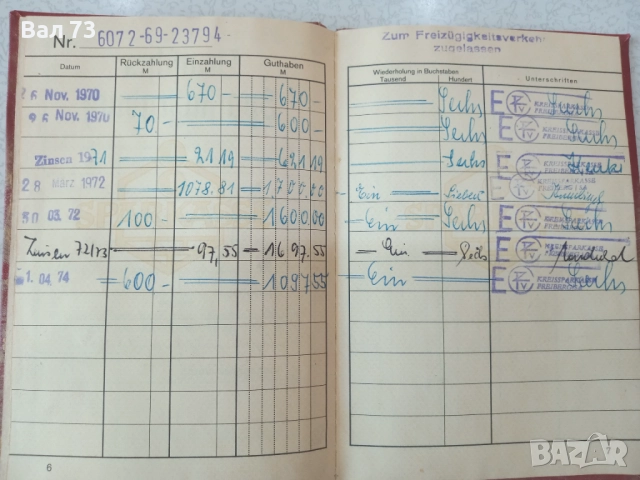 Вал 73
Nr. 6072-69-23794
Datum Rückzahlung M Einzahlung M Guthaben M
26 Nov. 1970 670 - 670 -
26 Nov. 1970 70 - 600 -
Zinsen 1971 21 19 621 19
28 März 1972 1078.81 1700 00
30 03. 72 100 - 1600.00
Zinsen 72/73 97,55 1697,55
1. 04. 74 600 - 1097 55
6
Zum Freizügigkeitsverkehr
zugelassen
Wiederholung in Buchstaben Unterschriften
Tausend Hundert
Sechs E KREISSPARKASSE
Sechs E
Sechs E KREISSPARKASSE
Ein Sieben E
Ein Sechs E KREISSPARKASSE
Ein Sechs E KREISSPARKASSE FREIBERG
Ein E KREISSPARKASSE FREIBERG
BAZAR